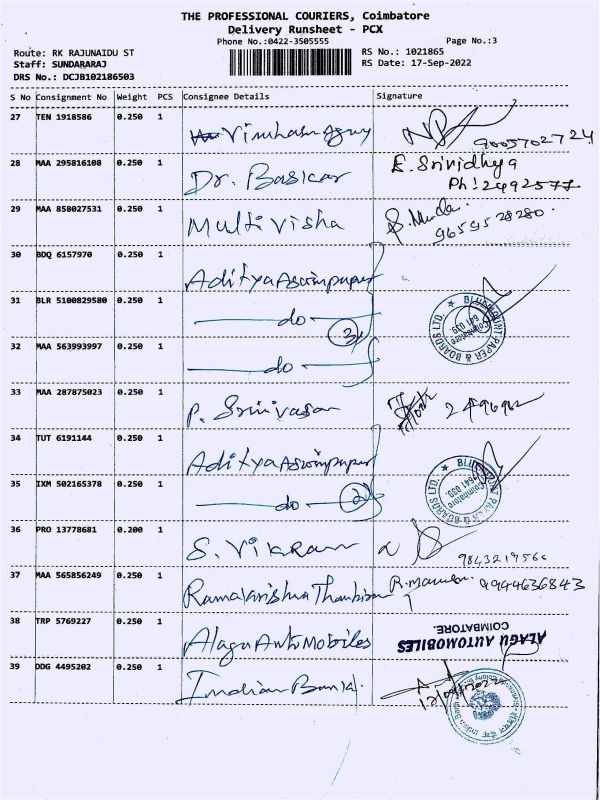 THE PROFESSIONAL COURIERS, Coimbatore
Delivery Runsheet - PCX
Phone No.:0422-3505555 Page No.:3
Route: RK RAJUNAIDU ST RS No.: 1021865
Staff: SUNDARARAJ RS Date: 17-Sep-2022
DRS No.: DCJB102186503
S No Consignment No Weight PCS Consignee Details Signature
27 TEN 1918586 0.250 1 9005702724
28 MAA 295816108 0.250 1 Dr. Baskar E. Srinidhya
Ph: 2492577
29 MAA 858027531 0.250 1 Multi Visha
9659528280.
30 BDQ 6157970 0.250 1 Aditya
31 BLR 5100829580 0.250 1 do 3 BLUEMOUNT PAPER & BOARDS LTD. Coimbatore 641 039.
32 MAA 563993997 0.250 1 do
33 MAA 287875023 0.250 1 P. Srinivasan
34 TUT 6191144 0.250 1 Aditya
35 IXM 502165378 0.250 1 do 2 BLUEMOUNT PAPER & BOARDS LTD. Coimbatore 641 039.
36 PRO 13778681 0.200 1 S. Vikram
37 MAA 565856249 0.250 1 Ramakrishna 9994636843
38 TRP 5769227 0.250 1 Alagu Automobiles ALAGU AUTOMOBILES
COIMBATORE.
39 DDG 4495202 0.250 1 Indian Bank